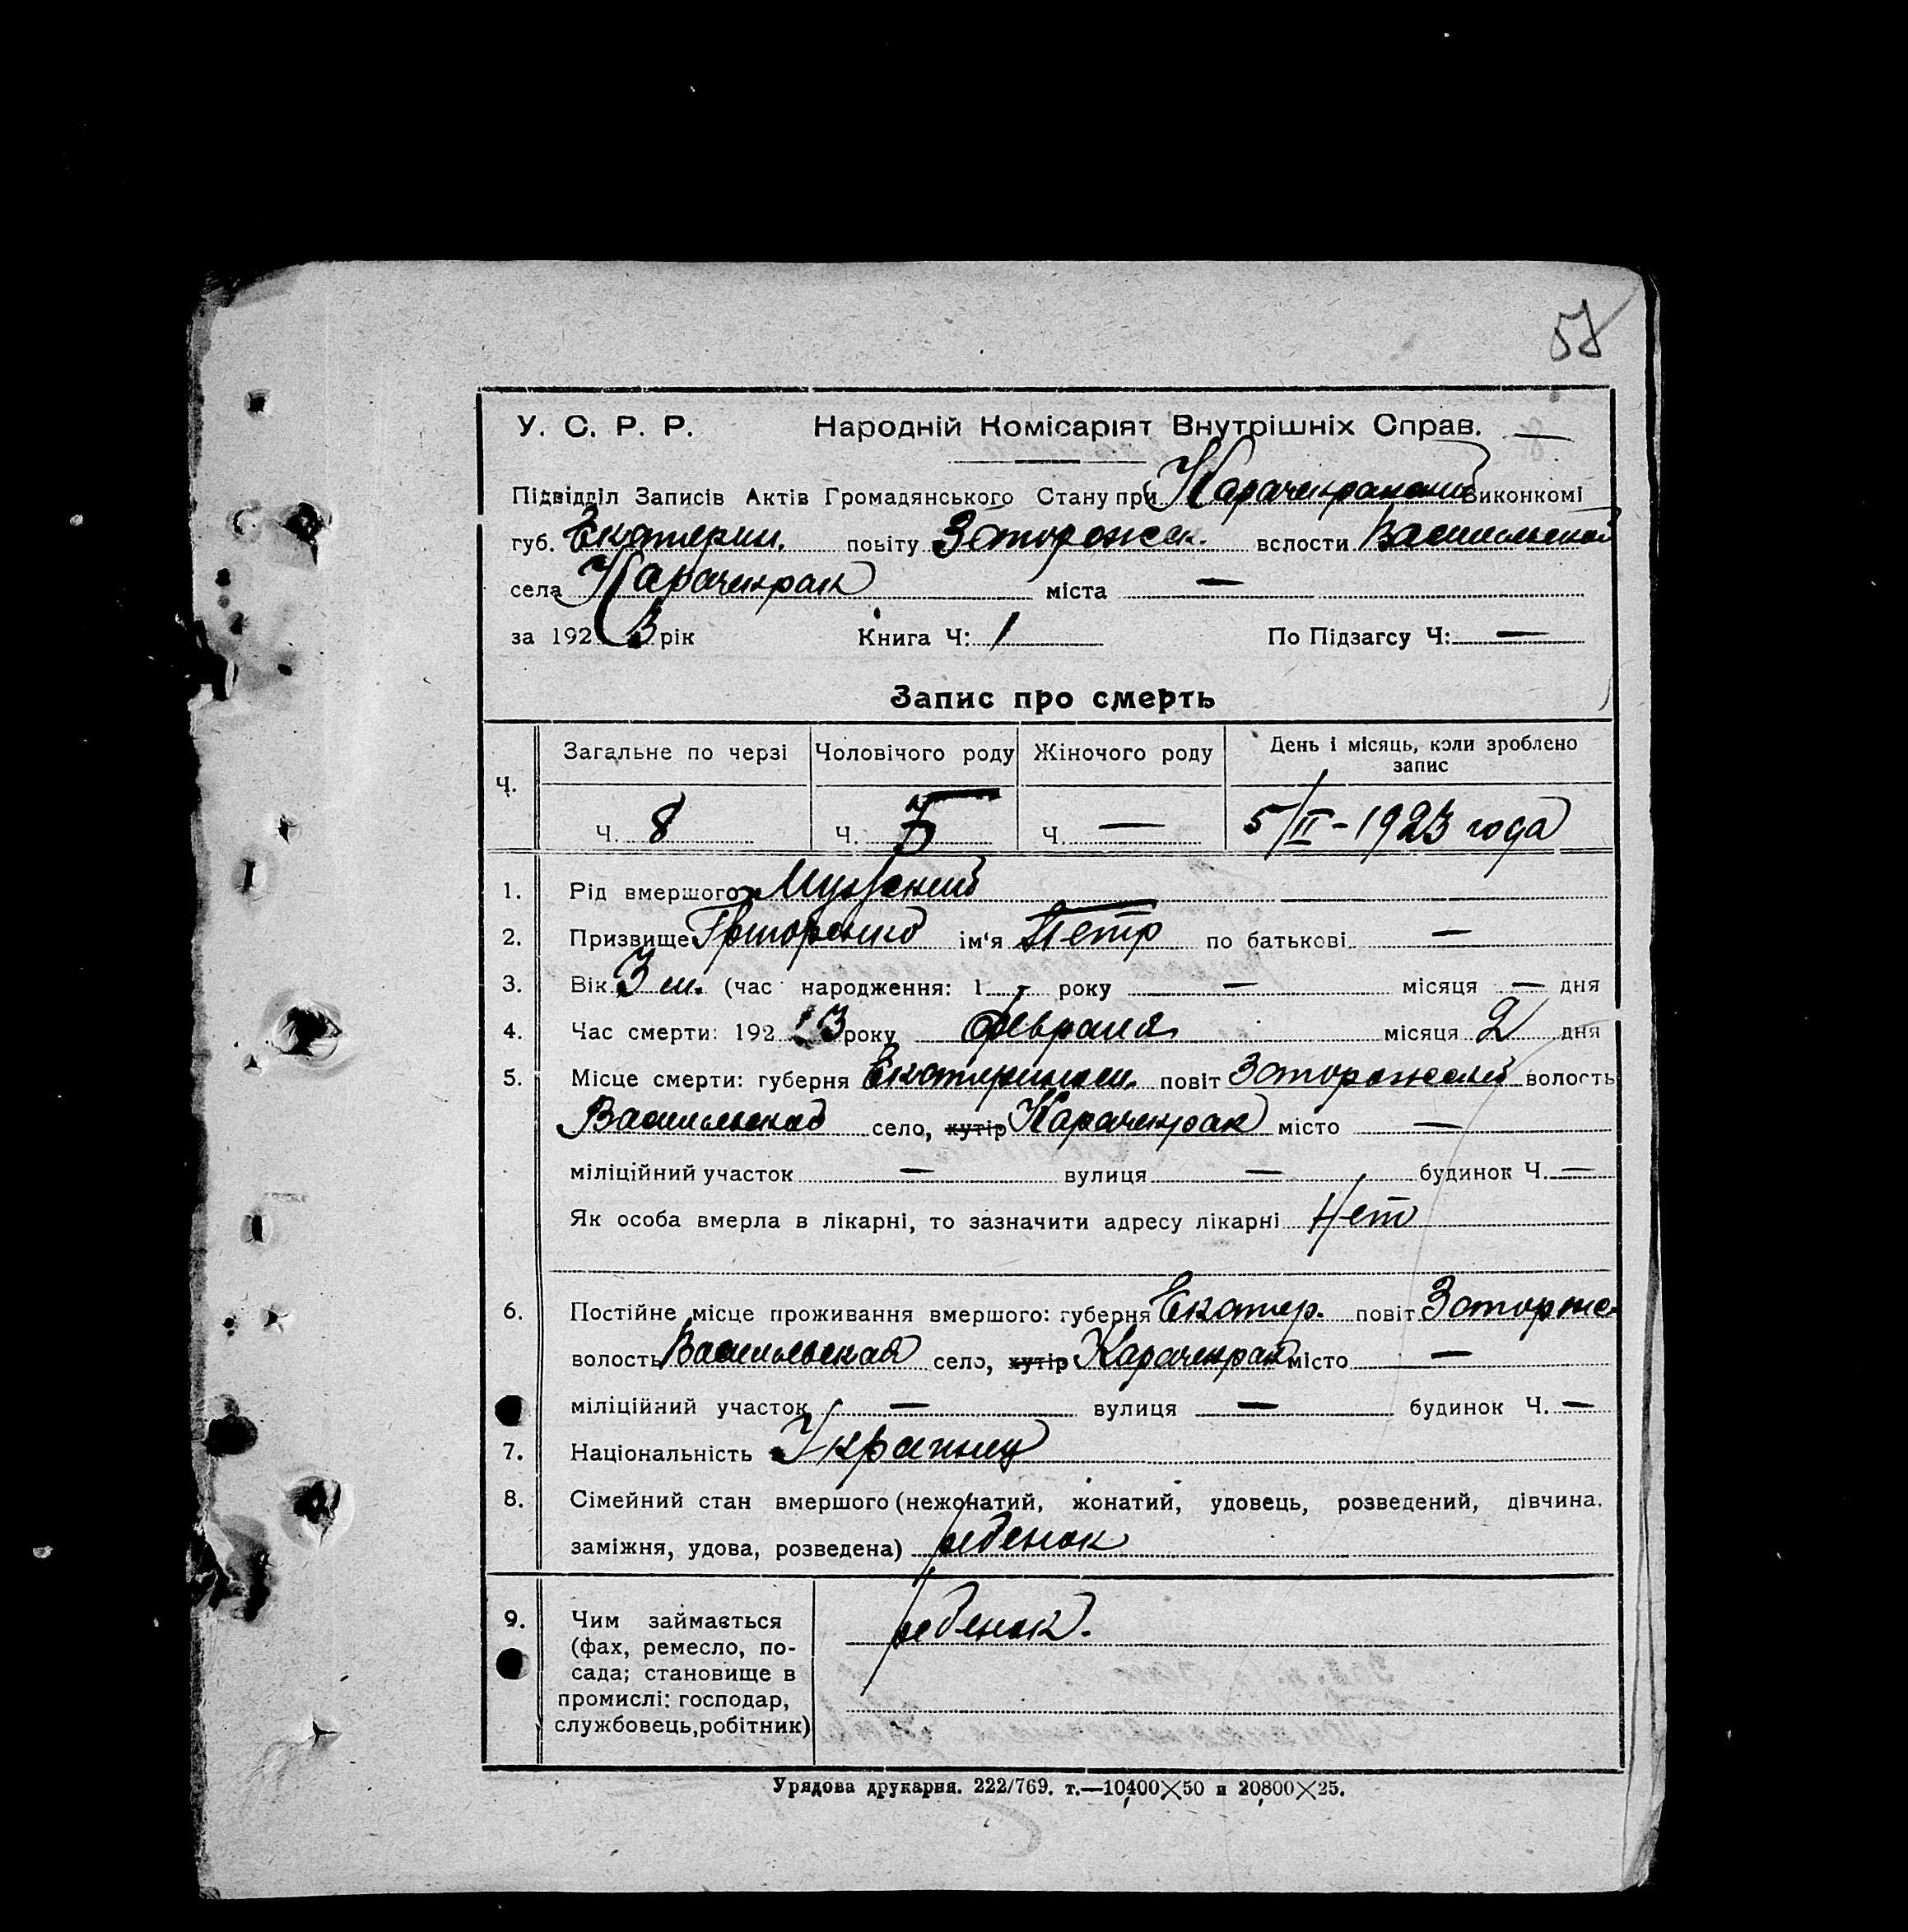 57
У. С. Р. Р. Народній Комісаріят Внутрішніх Справ. —
Підвідділ Записів Актів Громадянського Стану при Карачекракском виконкомі
губ. Екатерин. повіту Запорожск. волости Васильевской
села Карачекрак міста —
за 1923 рік Книга Ч: 1 По Підзагсу Ч: —
Запис про смерть
Ч. Загальне по черзі Чоловічого роду Жіночого роду День і місяць, коли зроблено запис
Ч. 8 Ч. 5 Ч. — 5/II-1923 года
1. Рід вмершого Мужский
2. Призвище Григоренко ім'я Петр по батькові —
3. Вік 3 м. (час народження: 1 - року — місяця — дня
4. Час смерти: 1923 року февраля місяця 2 дня
5. Місце смерти: губерня Екатериносл. повіт Запорожский волость
Васильевской село, хутір Карачекрак місто —
міліційний участок — вулиця — будинок Ч. —
Як особа вмерла в лікарні, то зазначити адресу лікарні Нет
6. Постійне місце проживання вмершого: губерня Екатер. повіт Запорож.
волость Васильевская село, хутір Карачекрак місто —
міліційний участок — вулиця — будинок Ч. —
7. Національність Украинец
8. Сімейний стан вмершого (нежонатий, жонатий, удовець, розведений, дівчина.
заміжня, удова, розведена) ребенок
9. Чим займається ребенок.
(фах, ремесло, по-
сада; становище в
промислі: господар,
службовець, робітник)
Урядова друкарня. 222/769. т.—10400×50 и 20800×25.